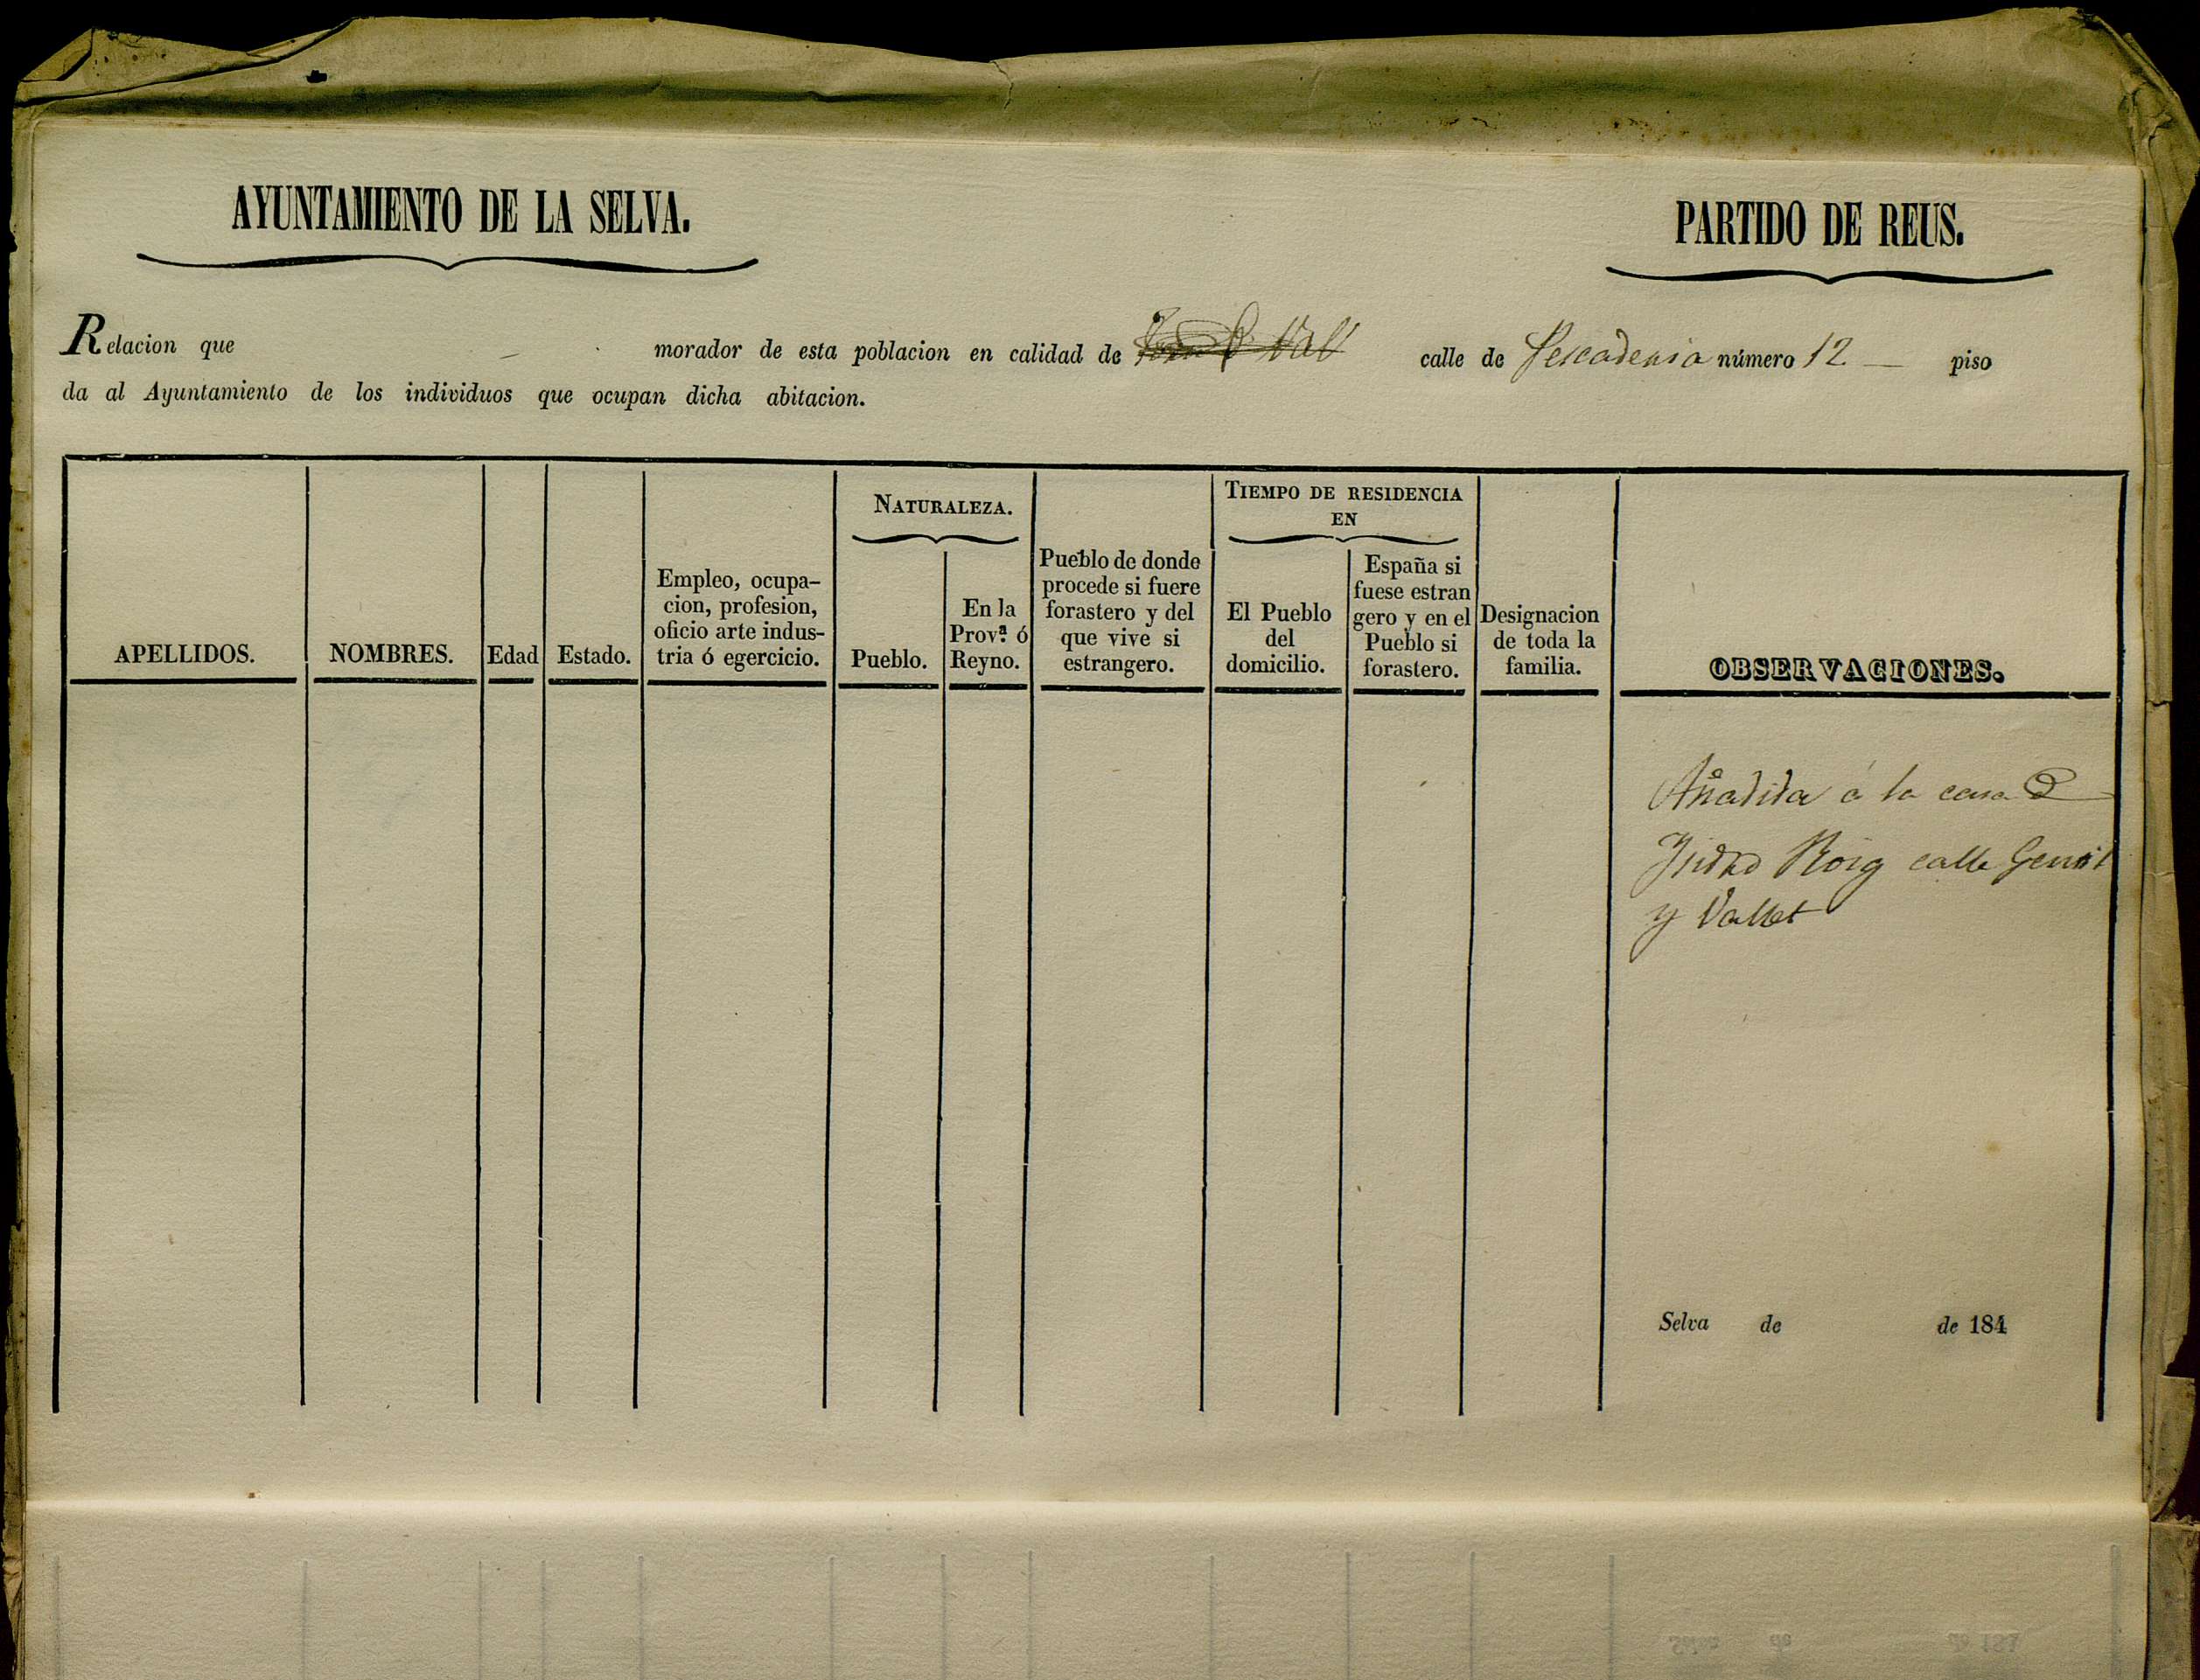 AYUNTAMIENTO DE LA SELVA.
PARTIDO DE REUS.
Relacion que morador de esta poblacion en calidad de calle de Pescaderia número 12 — piso
da al Ayuntamiento de los individuos que ocupan dicha abitacion.
APELLIDOS.
NOMBRES.
Edad
Estado.
Empleo, ocupa-
cion, profesion,
oficio arte indus-
tria ó egercicio.
NATURALEZA.
Pueblo.
En la
Prov.ª ó
Reyno.
Pueblo de donde
procede si fuere
forastero y del
que vive si
estrangero.
TIEMPO DE RESIDENCIA
EN
El Pueblo
del
domicilio.
España si
fuese estran
gero y en el
Pueblo si
forastero.
Designacion
de toda la
familia.
OBSERVACIONES.
Añadida á la casa D
Ysidro Roig calle
y Vallet
Selva de de 184